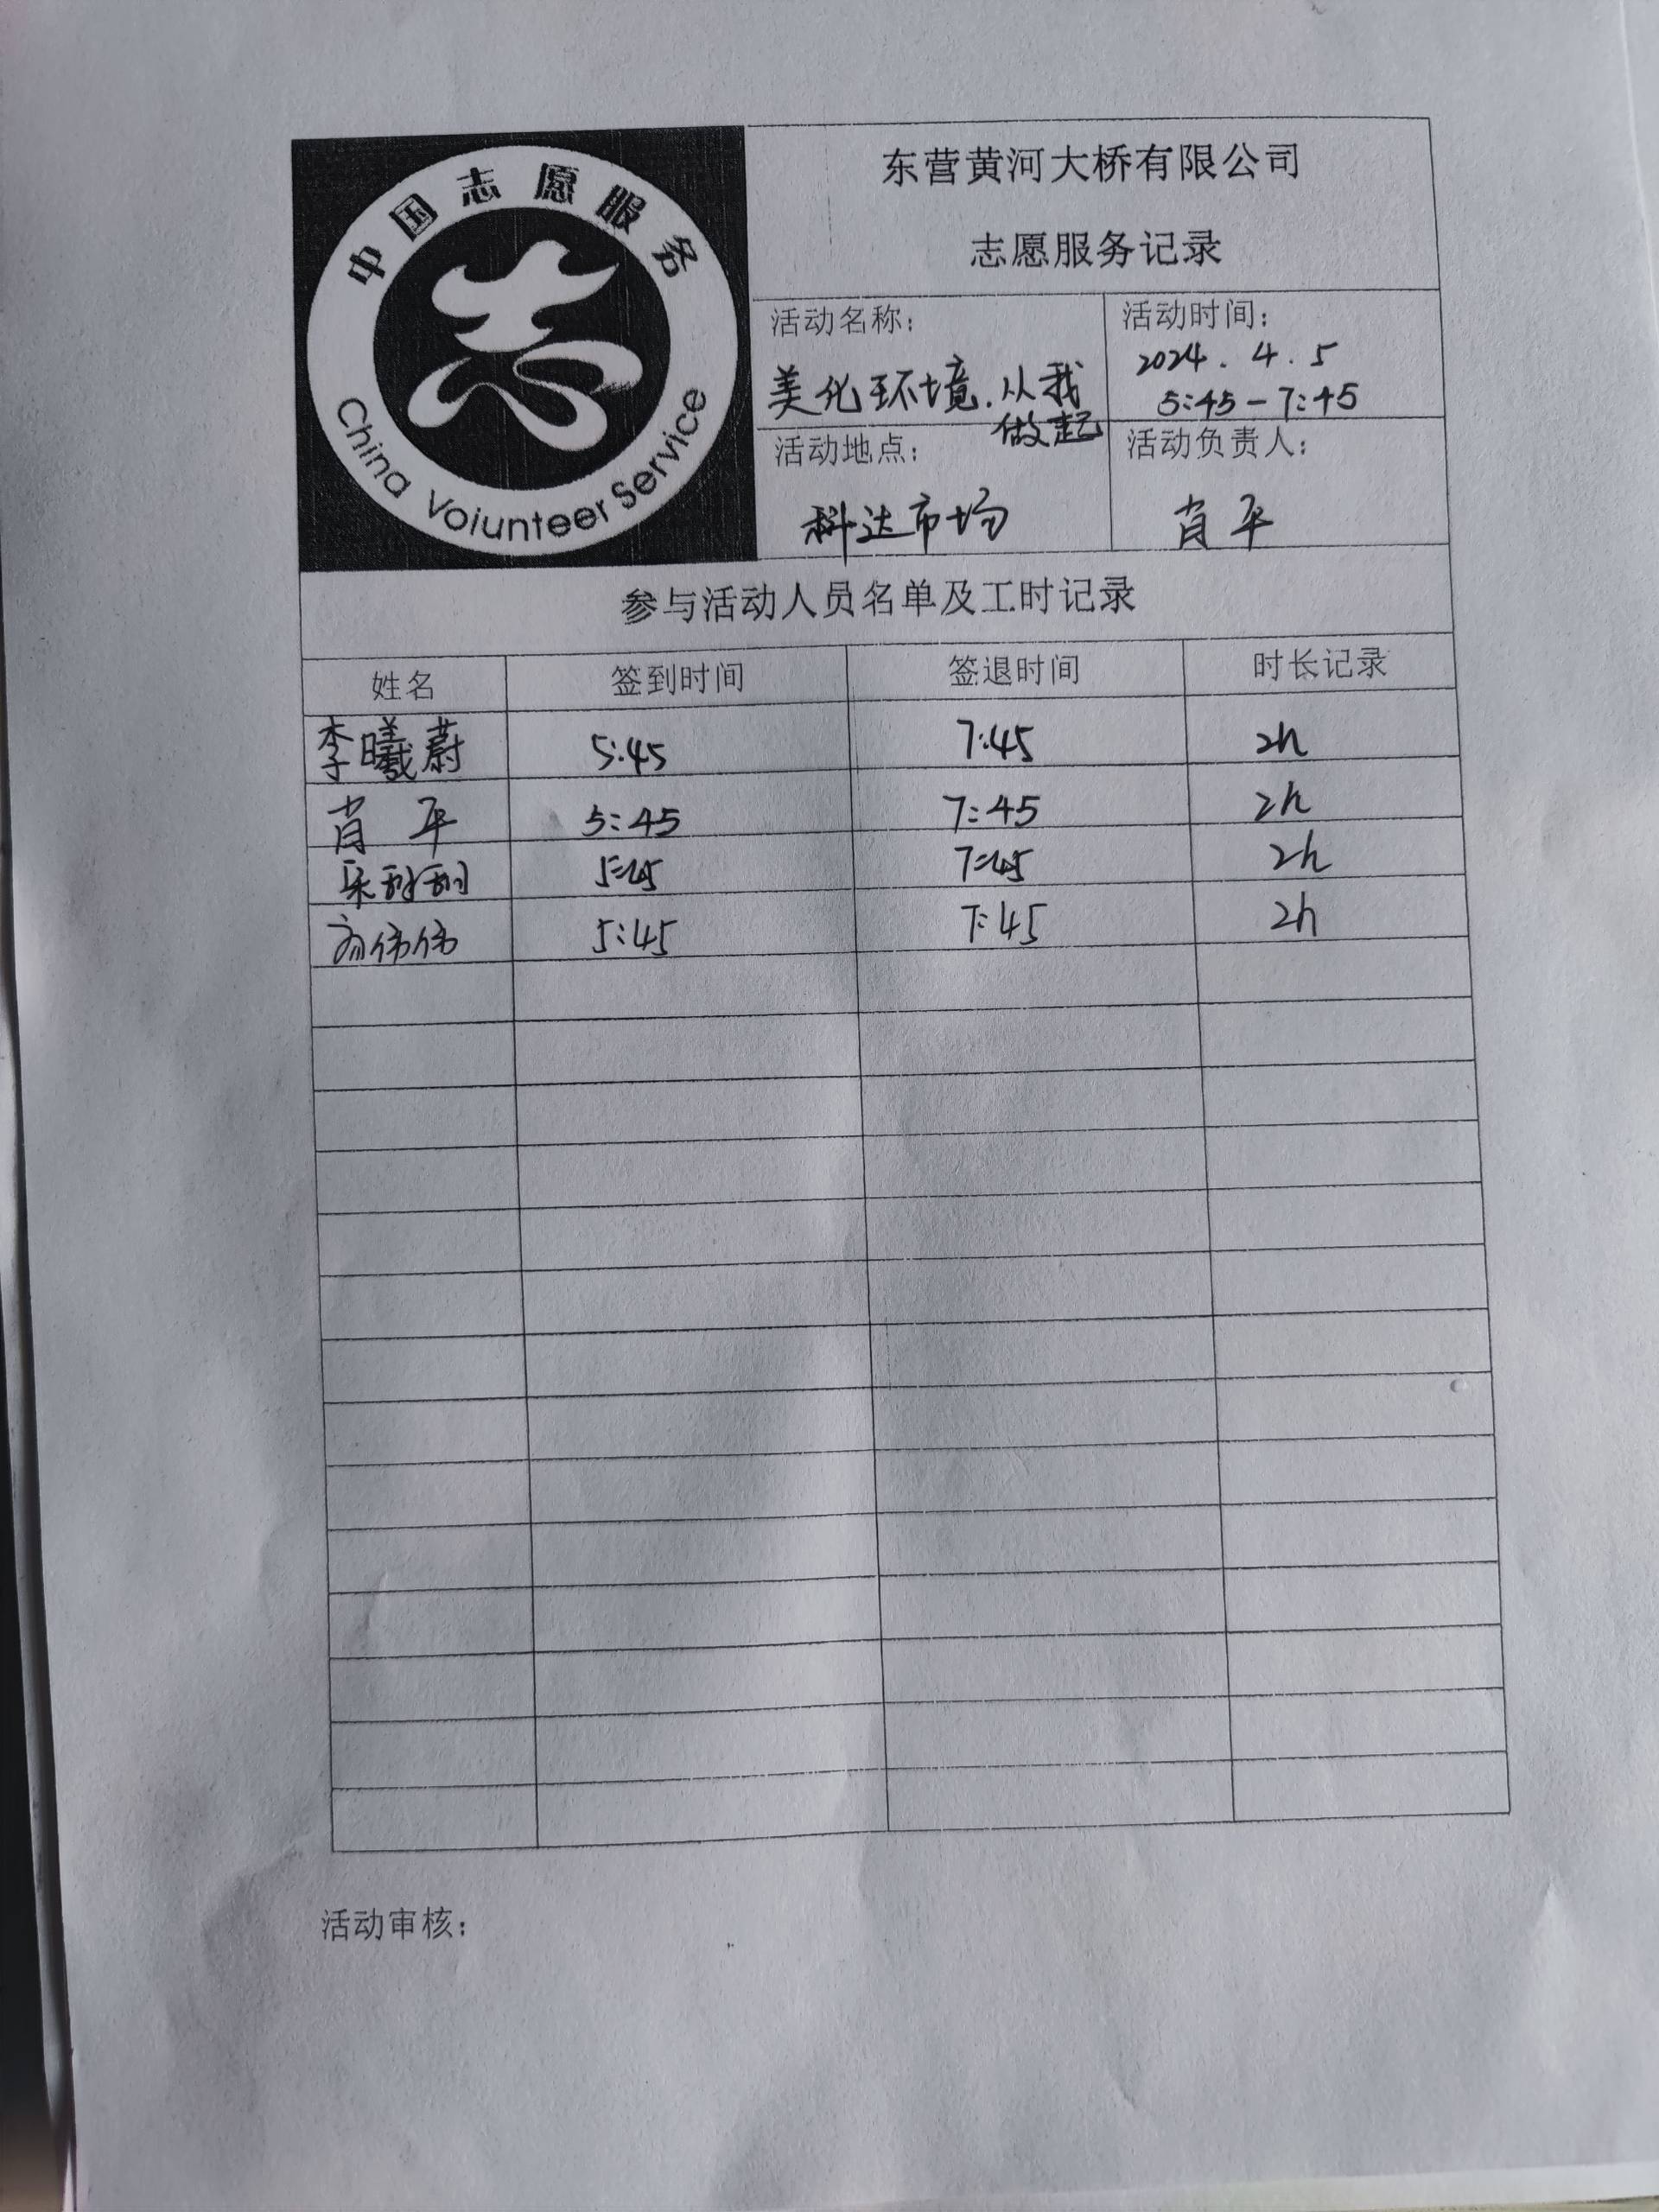 中国志愿服务
China Voiunteer Service
东营黄河大桥有限公司
志愿服务记录
活动名称：
美化环境.从我
做起
活动时间：
2024.4.5
5:45-7:45
活动地点：
科达市场
活动负责人：
肖平
参与活动人员名单及工时记录
姓名 签到时间 签退时间 时长记录
李曦蔚 5:45 7:45 2h
肖平 5:45 7:45 2h
5:45 7:45 2h
伟伟 5:45 7:45 2h
活动审核：